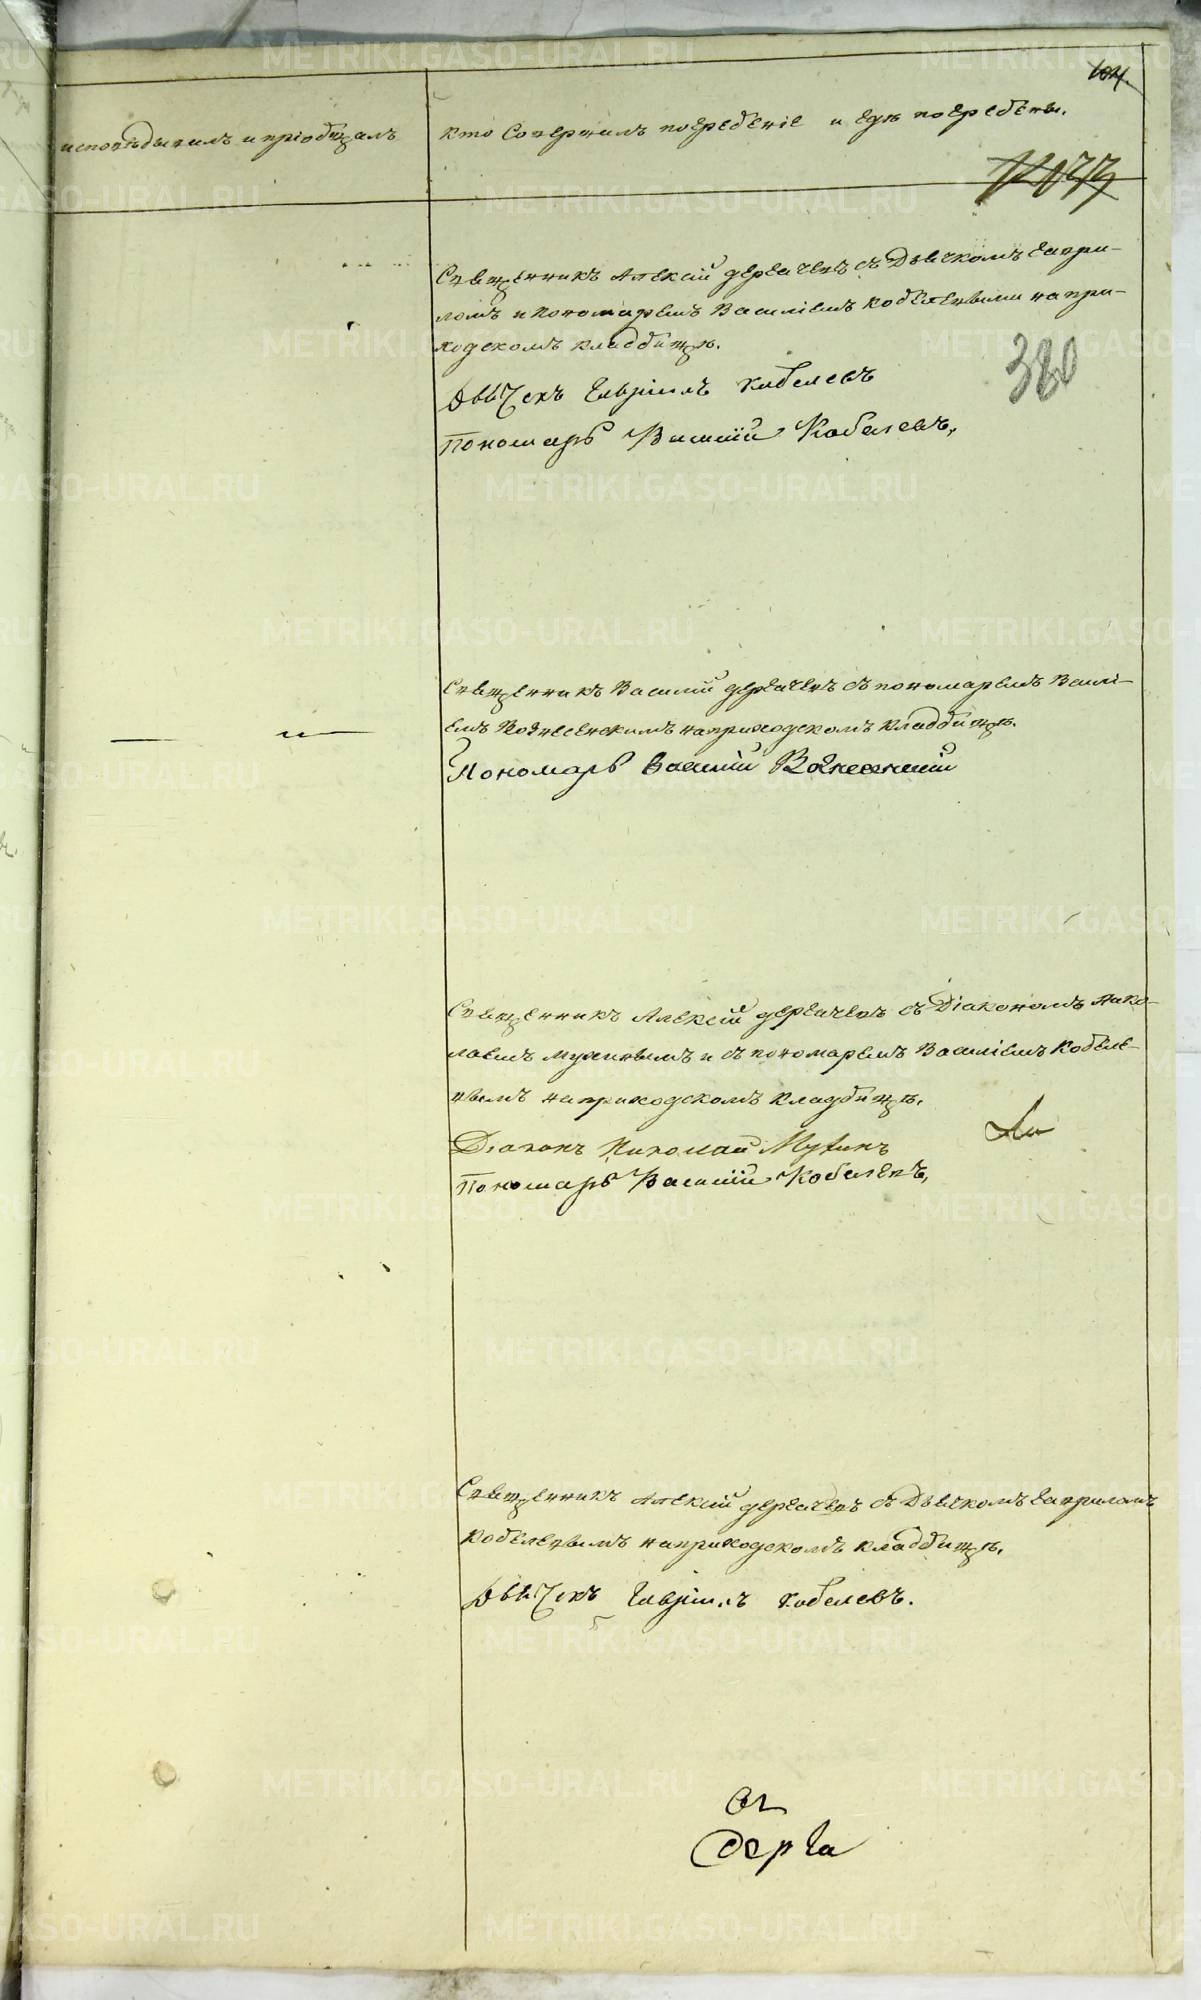 104.
исповѣдывалъ и пріобщалъ
кто Совершилъ погребеніе и гдѣ погребены.
380
Священникъ Алексій Дергачевъ съ Дьячкомъ Гаври-
ломъ и Пономаремъ Василіемъ Кобелевыми на при-
ходскомъ кладбищѣ.
Дьячекъ Гавріилъ Кобелевъ
Пономарь Василій Кобелевъ,
Священникъ Василій Дергачевъ съ пономаремъ Васиі-
емъ Вознесенскимъ на приходскомъ кладбищѣ.
Пономарь Василій Вознесенскій
Священникъ Алексій Дергачевъ съ Діакономъ Нико-
лаемъ Мухинымъ и съ пономаремъ Василіемъ Кобеле-
вымъ на приходскомъ кладбищѣ.
Діаконъ Николай Мухинъ
Пономарь Василій Кобелевъ,
Священникъ Алексій Дергачевъ съ Дьячкомъ Гавриломъ
Кобелевымъ на приходскомъ кладбищѣ.
Дьячекъ Гавріилъ Кобелевъ.
METRIKI.GASO-URAL.RU